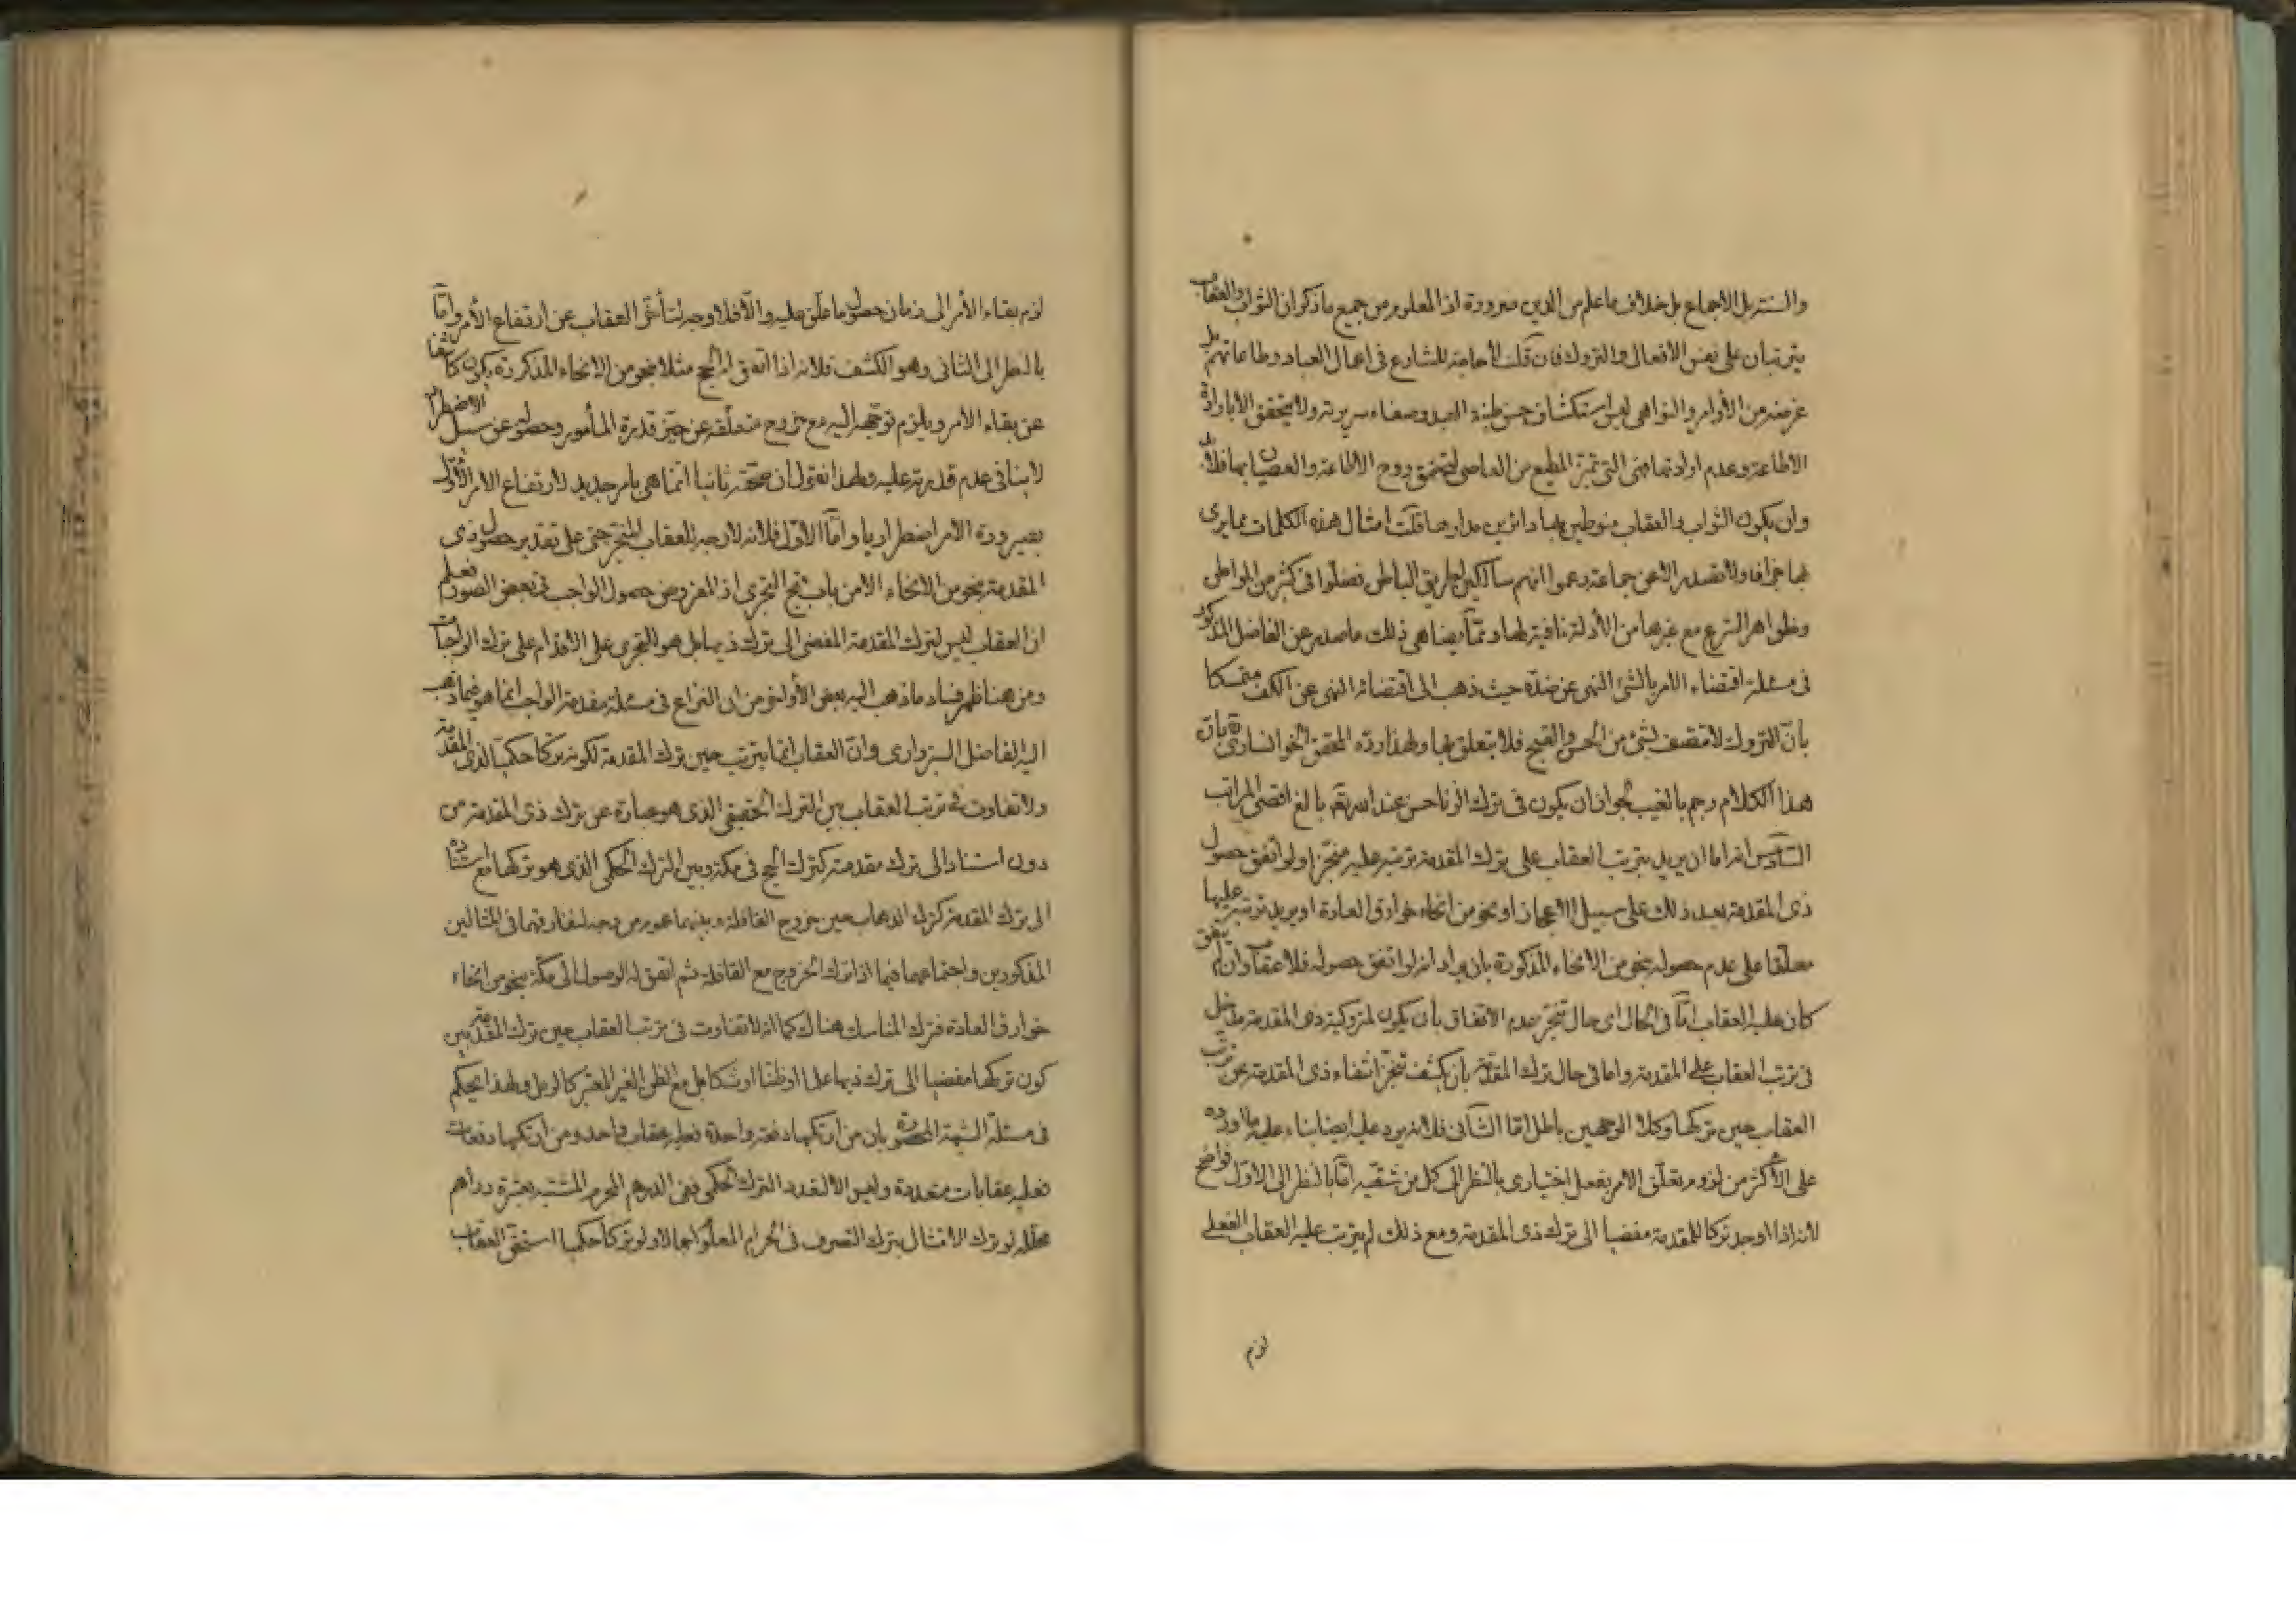 والسنة بل الاجماع بل خلاف ما علم من الدين ضرورة اذ المعلوم من جميع ما ذكر ان الثواب والعقاب
يترتبان على نفس الأفعال والتروك فان قلت لا حاجة للشارع في اعمال العباد وطاعاتهم بل
غرضه من الأوامر والنواهي ليس استكشاف حسن طينة العبد وصفاء سريرته ولا يتحقق الا بارادة
الاطاعة وعدم ارادتها فهي التي تميز المطيع من العاصي لتحقق روح الاطاعة والعصيان بها فلا
وان يكون الثواب والعقاب منوطين بها دائرين مدارها قلت امثال هذه الكلمات مما يرى
بها جزافا ولا تصدر الا عن جماعة دعموا انهم سالكين طريق الباطن فضلوا في كثير من المواطن
وظواهر الشرع مع غيرها من الأدلة نافية لها ومما يضاهي ذلك ما صدر عن الفاضل المذكور
في مسئلة اقتضاء الأمر بالشئ النهي عن ضده حيث ذهب الى اقتضائه النهي عن الكف متمسكا
بأن التروك لا تتصف بشئ من الحسن والقبح فلا يتعلق بها ولهذا رده المحقق الخوانساري بان
هذا الكلام رجم بالغيب لجواز ان يكون في ترك الزنا حسن عند الله تعه بالغ اقصى المراتب
السادس انه اما ان يريد بترتب العقاب على ترك المقدمة ترتبه عليه منجزا ولو اتفق حصول
ذي المقدمة بعد ذلك على سبيل الاعجاز او نحو من انحاء خوارق العادة او يريد ترتبه عليها
معلقا على عدم حصوله بنحو من الانحاء المذكورة بان يراد انه لو اتفق حصوله فلا عقاب وان لم يتفق
كان عليه العقاب اما في الحال اي حال تنجز عدم الاتفاق بأن يكون لمتروكية ذي المقدمة مدخل
في ترتب العقاب على المقدمة واما في حال ترك المقدمة بان يكشف تنجز انتفاء ذي المقدمة عن ترتب
العقاب حين تركها وكلا الوجهين باطل اما الثاني فلانه يرد عليه ايضا بناء عليه ما اورده
على الأكثر من لزوم تعلق الامر بفعل اختياري بالنظر الى كل من شقيه اما بالنظر الى الاول فواضح
لأنه اذا وجد تركا للمقدمة مفضيا الى ترك ذي المقدمة ومع ذلك لم يترتب عليه العقاب الفعلي
لزم
لزم بقاء الأمر الى زمان حصول ما علق عليه والا فلا وجه لتأخر العقاب عن ارتفاع الأمر واما
بالنظر الى الثاني وهو الكشف فلانه اذا اتفق الحج مثلا بنحو من الانحاء المذكورة يكون كاشفا
عن بقاء الامر ويلزم توجهه اليه مع خروج متعلقه عن حيز قدرة المأمور وحصوله عن سبيل الاضطرار
لا ينافي عدم قدرته عليه ولهذا نقول ان صحته ثانيا انما هي بامر جديد لارتفاع الامر الأول
بصيرورة الامر اضطراريا واما الأول فلانه لا وجه للعقاب المنجز حتى على تقدير حصول ذي
المقدمة بنحو من الانحاء الا من باب قبح التجري اذ المفروض حصول الواجب في بعض الصور فعلم
ان العقاب ليس لترك المقدمة المفضي الى ترك ذيها بل هو التجري على الاقدام على ترك الواجبات
ومن هنا ظهر فساد ما ذهب اليه بعض الأواخر من ان النزاع في مسئلة مقدمة الواجب انما هو فيما ذهب
اليه الفاضل السبزواري وان العقاب انما يترتب حين ترك المقدمة لكونه تركا حكميا لذي المقدمة
ولا تفاوت في ترتب العقاب بين الترك الحقيقي الذي هو عبارة عن ترك ذي المقدمة من
دون استناد الى ترك مقدمته كترك الحج في مكة وبين الترك الحكمي الذي هو تركها مع استناده
الى ترك المقدمة كترك الذهاب حين خروج القافلة وبينهما عموم من وجه لمفارقتهما في المثالين
المذكورين واجتماعهما فيما اذا ترك الخروج مع القافلة ثم اتفق له الوصول الى مكة بنحو من انحاء
خوارق العادة فترك المناسك هناك كما انه لا تفاوت في ترتب العقاب حين ترك المقدمة بين
كون تركها مفضيا الى ترك ذيها علما او ظنا او شكا بل مع الظن الغير المعتبر كالرمل ولهذا يحكم
في مسئلة الشبهة المحصورة بان من ارتكبها دفعة واحدة فعليه عقاب واحد ومن ارتكبها دفعات
فعليه عقابات متعددة وليس الا لتعدد الترك الحكمي ففي الدرهم المحرم المشتبه بعشرة دراهم
محللة لو ترك الامتثال بترك التصرف في الحرام المعلوم اجمالا ولو تركا حكميا استحق العقاب